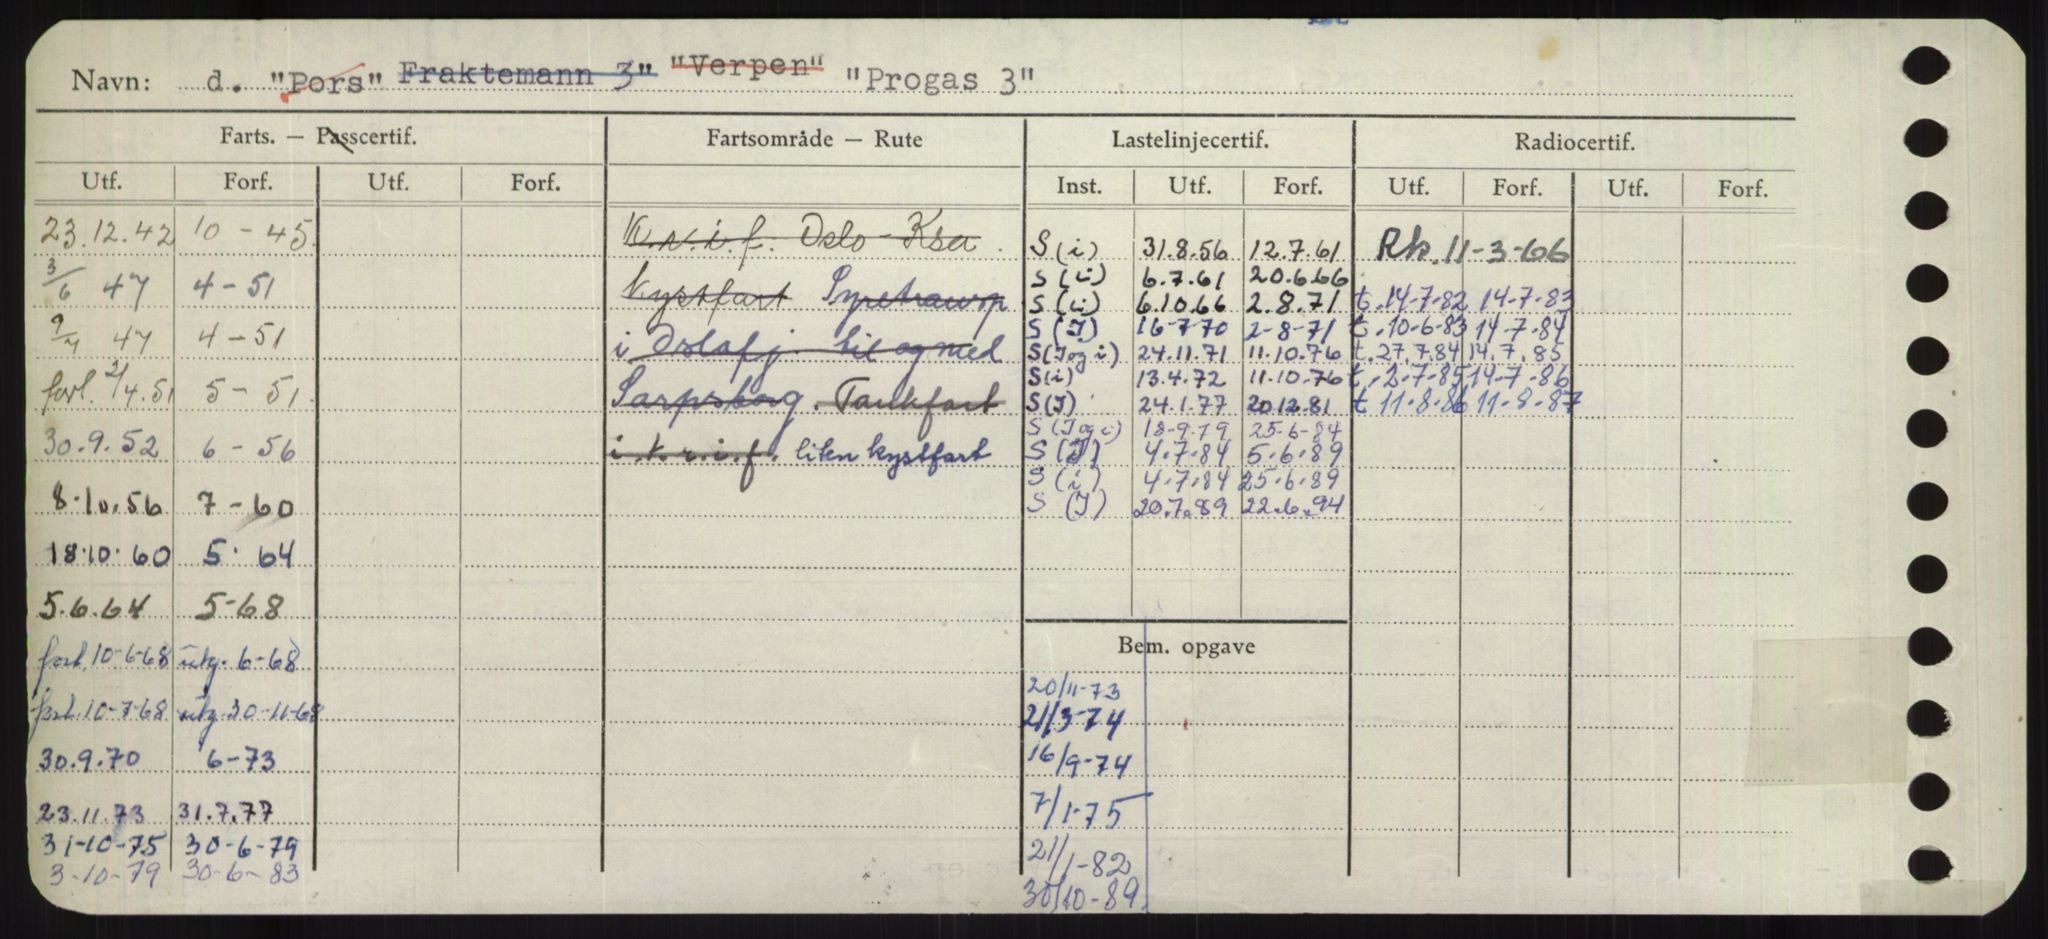 Navn: d. "Pors" Fraktemann 3" "Verpen" "Progas 3"
Farts. — Passcertif. Fartsområde — Rute Lastelinjecertif. Radiocertif.
Utf. Forf. Utf. Forf. Inst. Utf. Forf. Utf. Forf. Utf. Forf.
23.12.42 10 - 45.
3/6 47 4 - 51
9/7 47 4 - 51
forl. 2/4.51 5 - 51.
30.9.52 6 - 56
8.10.56 7 - 60
18.10.60 5. 64
5.6.64 5-68
forl. 10-6-68 utg. 6-68
forl. 10-7-68 utg. 30-11-68
30.9.70 6-73
23.11.73 31.7.77
31-10-75 30-6-79
3-10-79 30-6-83
K.r.i.f. Oslo - Ksa.
Kystfart Syretransp
i Oslofj. til og med
Sarpsborg. Tankfart
i.k.r.i.f. liten kystfart
S (i) 31.8.56 12.7.61
S (i) 6.7.61 20.6.66
S (i) 6.10.66 2.8.71
S (I) 16-7-70 2-8-71
S (I og i) 24.11.71 11.10.76
S (i) 13.4.72 11.10.76
S (I) 24.1.77 20.12.81
S (I og i) 18-9-79 25-6-84
S (I) 4.7.84 5.6.89
S (i) 4.7.84 25.6.89
S (I) 20.7.89 22.6.94
Rk. 11-3-66
t. 14-7-82 14-7-83
t. 10-6-83 14-7-84
t. 27.7.84 14.7.85
t. 2-7-85 14-7-86
t 11-8-86 11-8-87
Bem. opgave
20/11-73
21/3-74
16/9-74
7/1-75
21/1-82
30/10-89